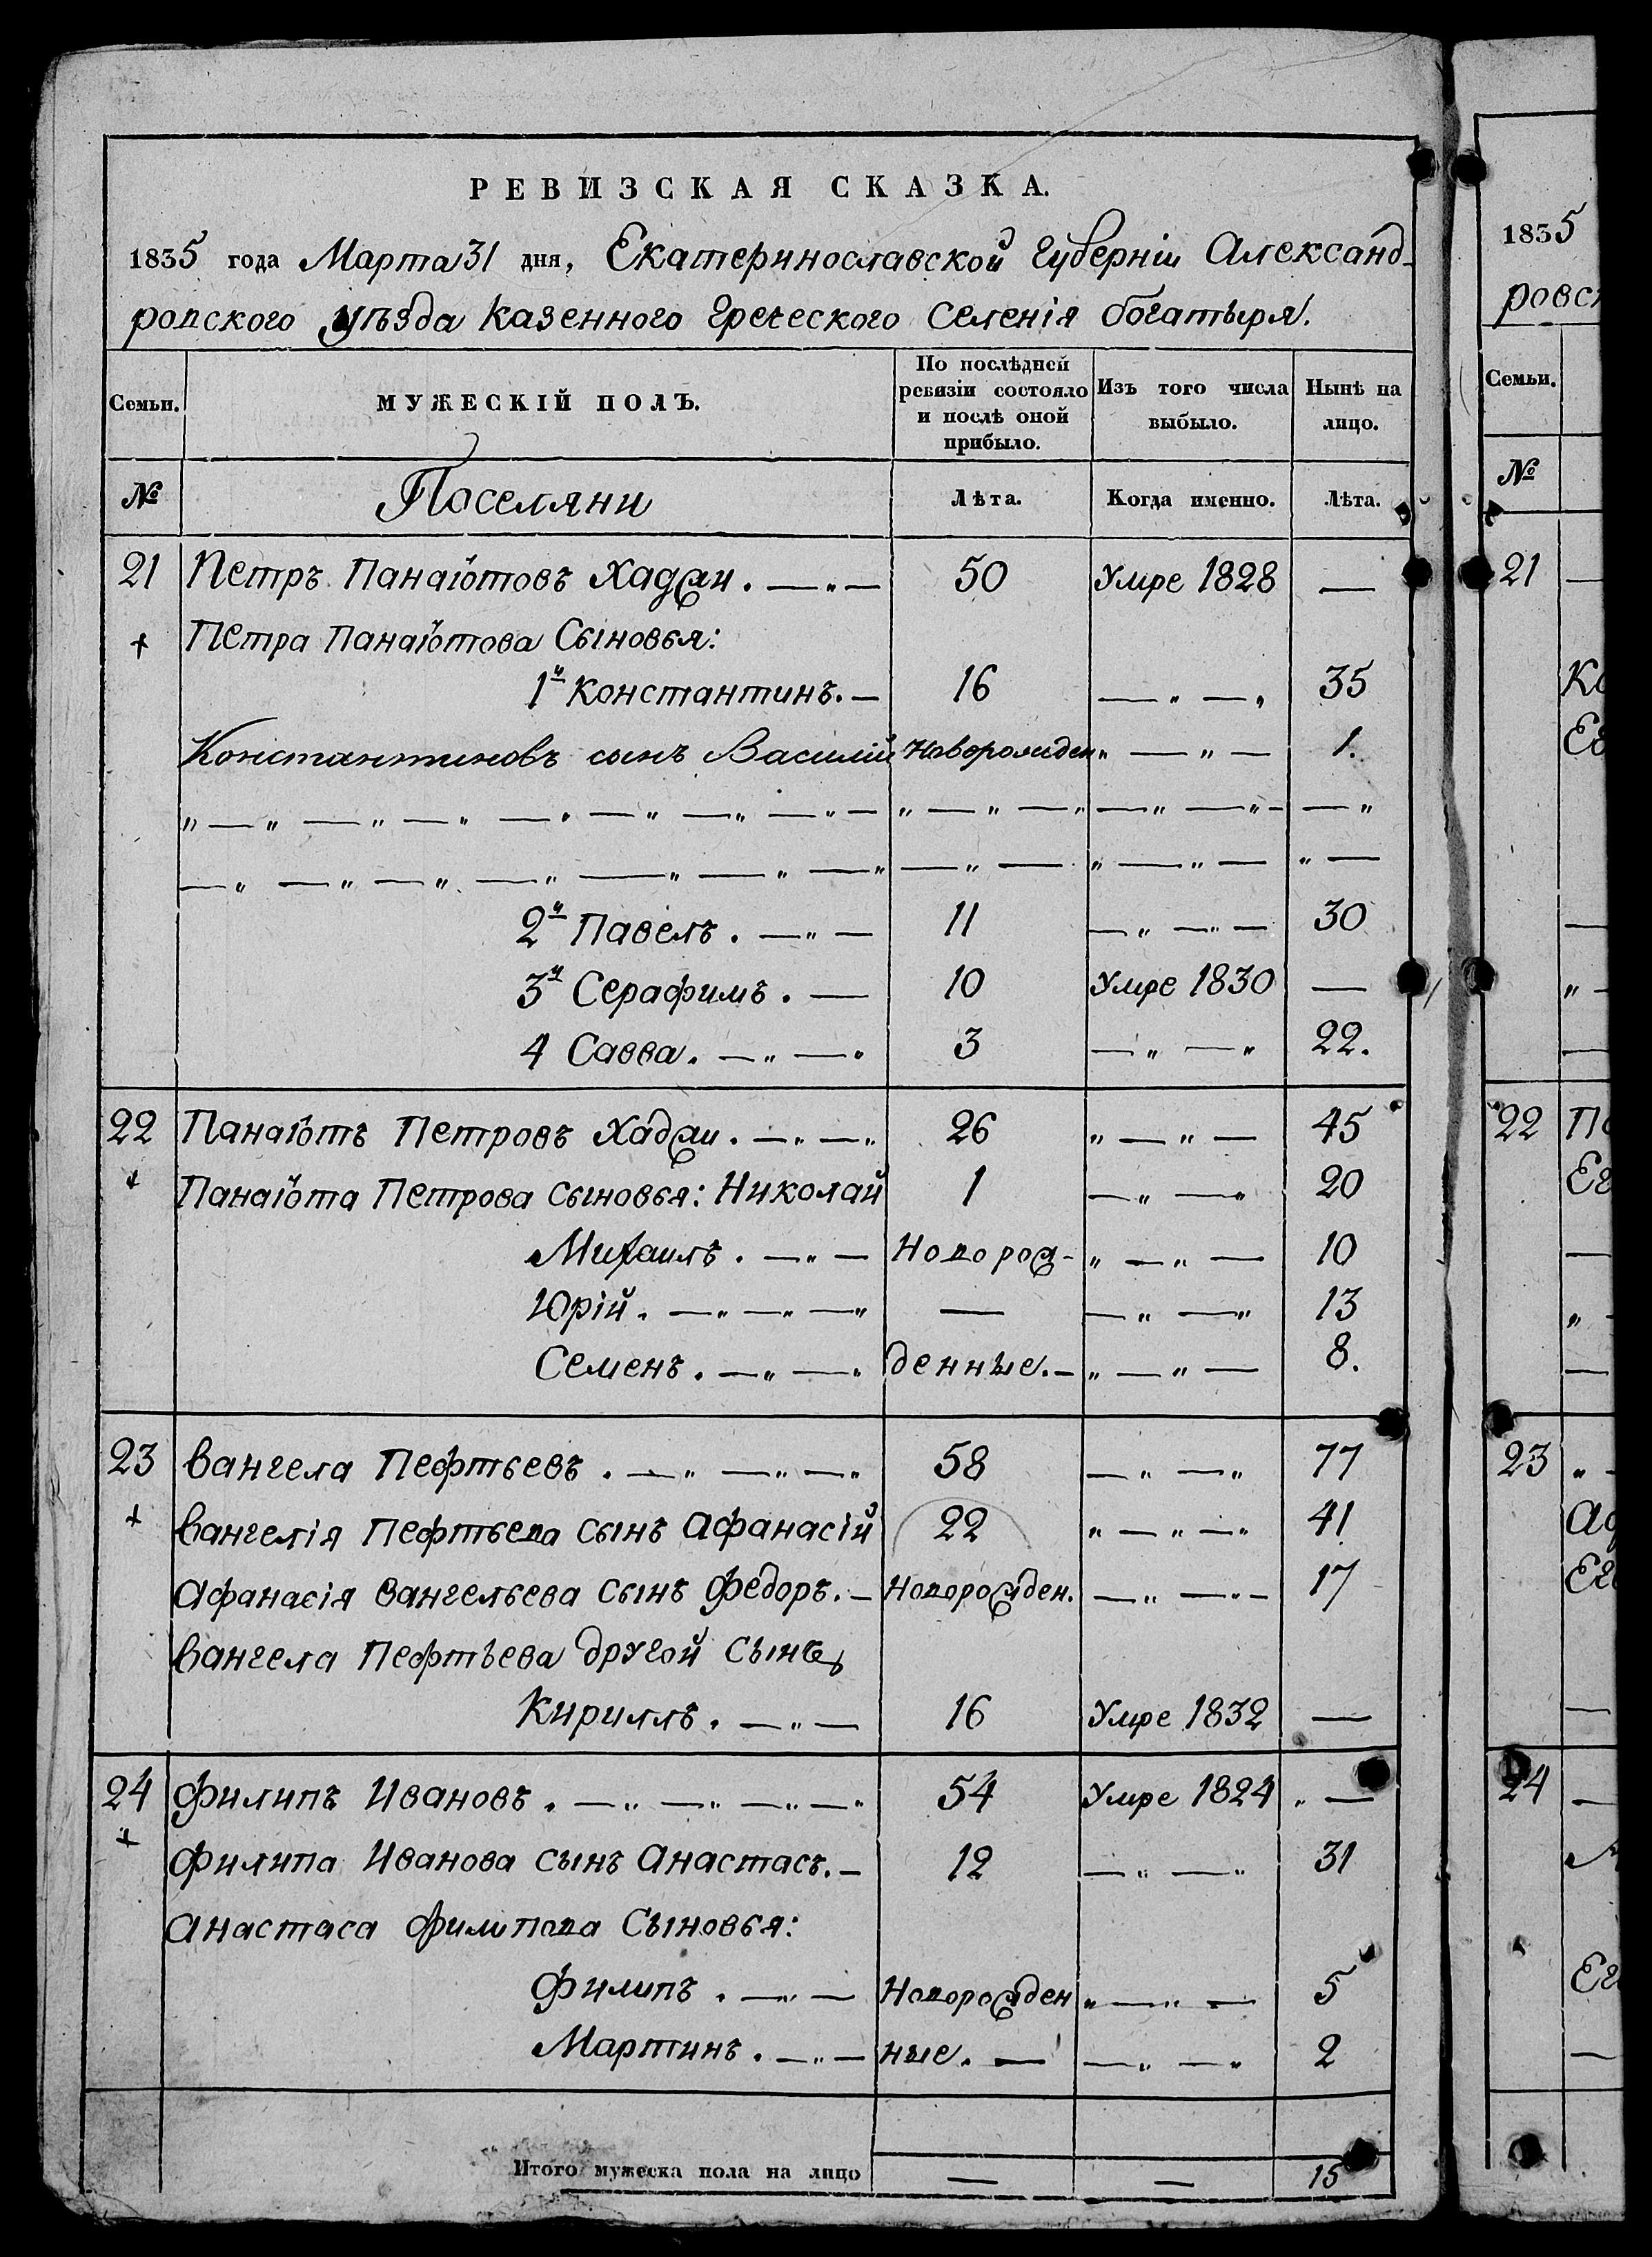 РЕВИЗСКАЯ СКАЗКА.
1835 года Марта 31 дня, Екатеринославской губерніи Александ-
ровского уѣзда казенного греческого селенія богатыря.
Семьи. МУЖЕСКІЙ ПОЛЪ. По послѣдней ревизіи состояло и послѣ оной прибыло. Изъ того числа выбыло. Нынѣ на лицо.
№ Поселяни Лѣта. Когда именно. Лѣта.
21 Петръ Панаіотовъ Хаджи. — „ — 50 Умре 1828 —
+ Петра Панаіотова Сыновья:
1й Константинъ. — 16 — „ — „ 35
Константиновъ сынъ Василий Новорожден „ — „ — 1.
„ — „ — „ — „ — „ — „ — „ — „ — „ — „ — „ — „ — „ — — „
— „ — „ — „ — „ — „ — „ — „ — „ — „ — „ — „ —
2й Павелъ. — „ — 11 — „ — „ — 30
3й Серафимъ. — 10 Умре 1830 —
4 Савва. — „ — „ 3 — „ — „ 22.
22 Панаіотъ Петровъ Хаджи. — „ — „ 26 „ — „ — 45
+ Панаіота Петрова сыновья: Николай 1 — „ — „ 20
Михаилъ. — „ — Еоворож- „ — „ — 10
Юрій. — „ — „ — „ — — „ — „ 13
Семенъ. — „ — „ денные. — „ — „ — 8.
23 Вангела Пефтьевъ. — „ — „ — „ 58 — „ — „ 77
+ Вангелія Пефтьева сынъ Афанасій 22 „ — „ — „ 41
Афанасія Вангельева сынъ Федоръ. — Новорожден. — „ — „ — 17
Вангела Пефтьева другой Сынъ
Кириллъ. — „ — 16 Умре 1832 —
24 Филипъ Ивановъ. — „ — „ — „ — „ 54 Умре 1824 „ —
+ Филипа Иванова сынъ Анастасъ. — 12 — „ — „ 31
Анастаса Филипова Сыновья:
Филипъ. — „ — Новорожден „ — „ — 5
Мартинъ. — „ — ные. — — „ — „ 2
Итого мужеска пола на лицо — — 15
1835
ровск
Семьи.
№
21 —
Ко
Ег
—
„ —
—
22 Па
Ег
—
„ —
—
23 „ —
Аф
Ег
—
24 —
Ег
—